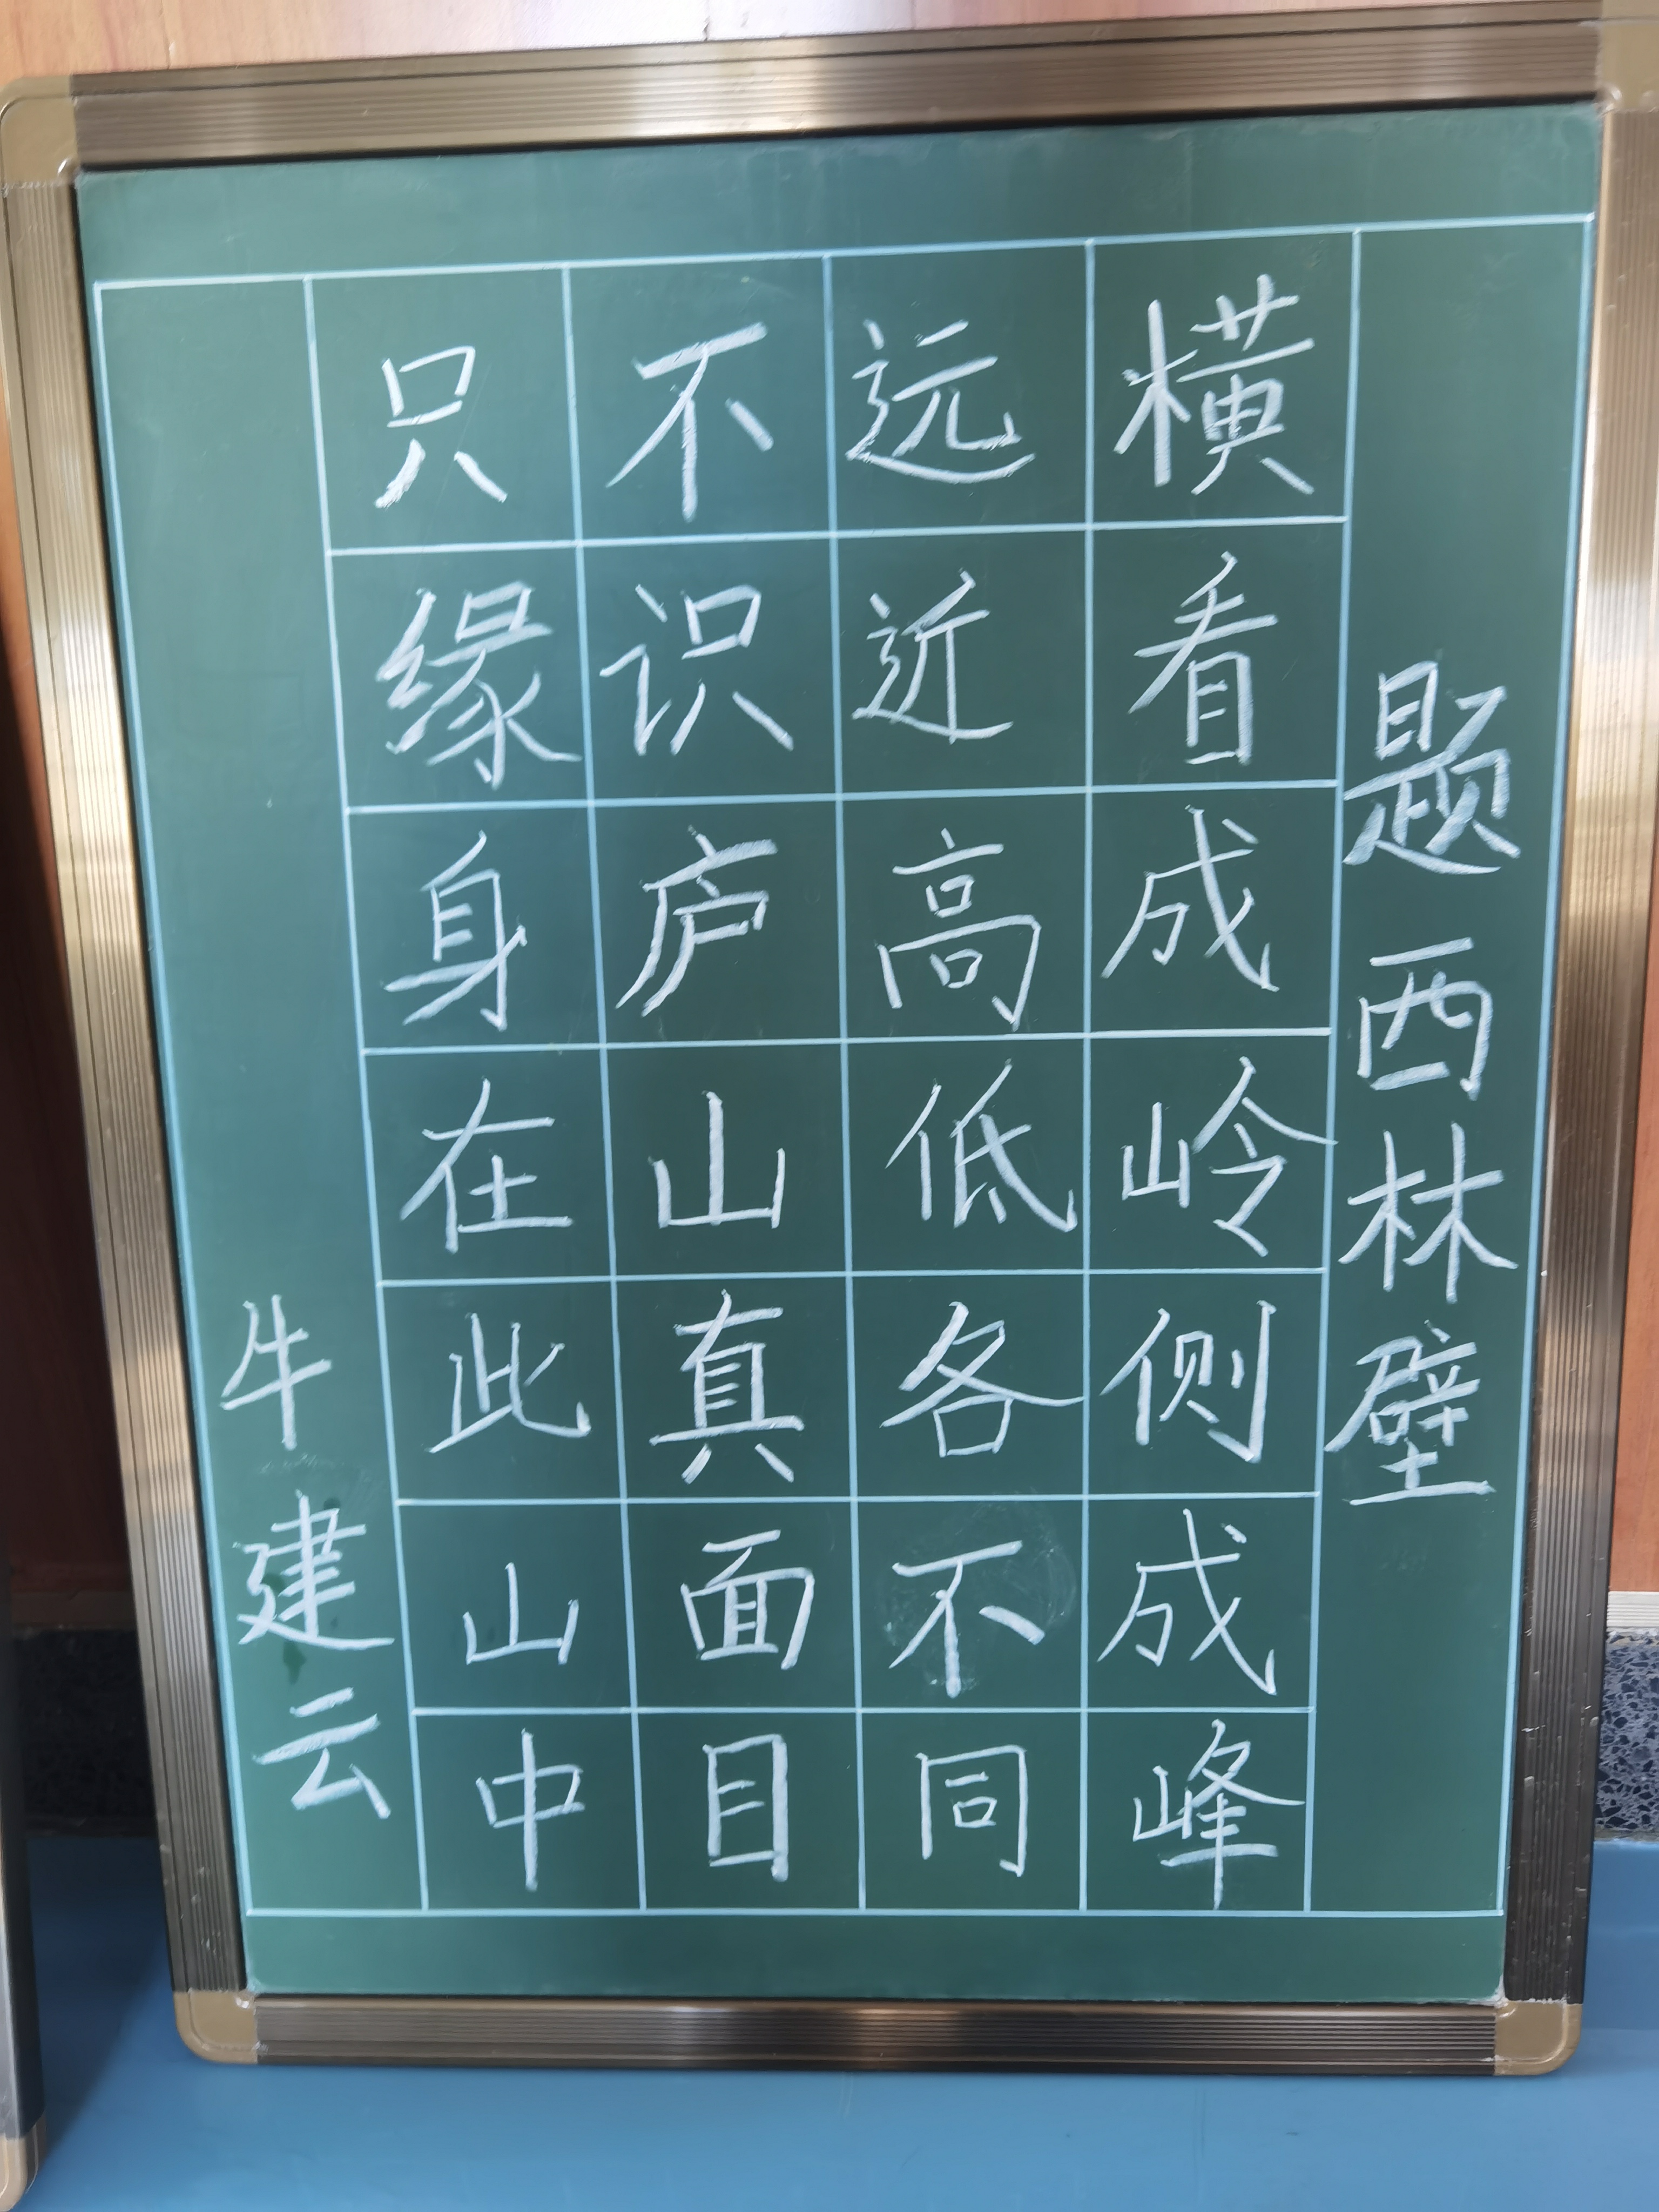 题西林壁
横看成岭侧成峰
远近高低各不同
不识庐山真面目
只缘身在此山中
牛建云